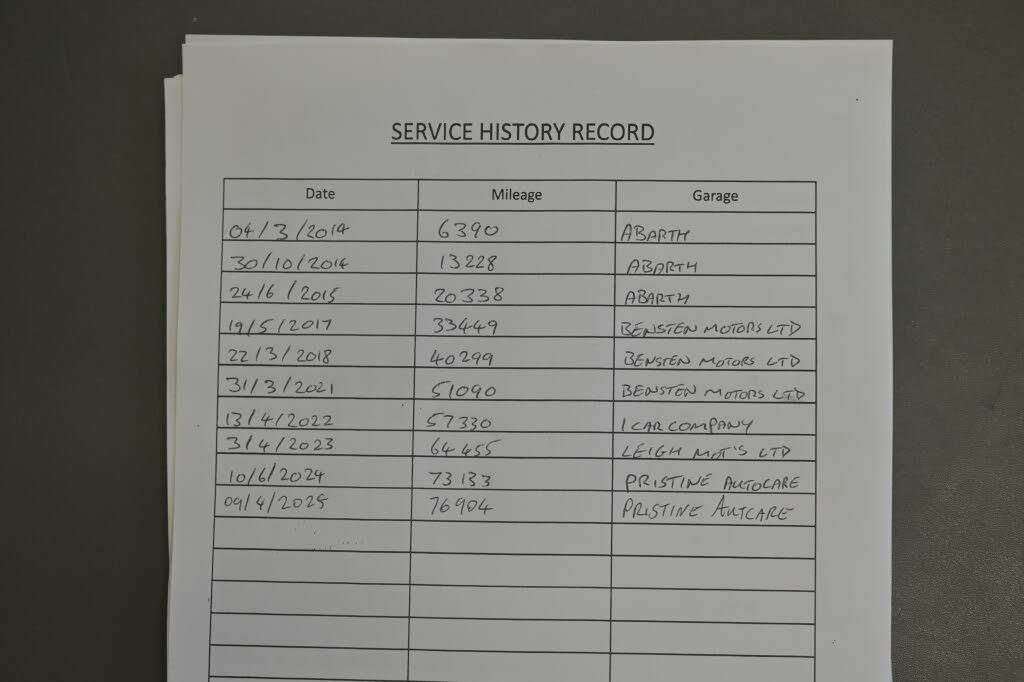 SERVICE HISTORY RECORD
Date Mileage Garage
04/3/2014 6390 ABARTH
30/10/2014 13228 ABARTH
24/6/2015 20338 ABARTH
19/5/2017 33449 BENSTEN MOTORS LTD
22/3/2018 40299 BENSTEN MOTORS LTD
31/3/2021 51090 BENSTEN MOTORS LTD
13/4/2022 57330 1 CAR COMPANY
3/4/2023 64455 LEIGH MOT'S LTD
10/6/2024 73133 PRISTINE AUTOCARE
09/4/2025 76904 PRISTINE AUTCARE